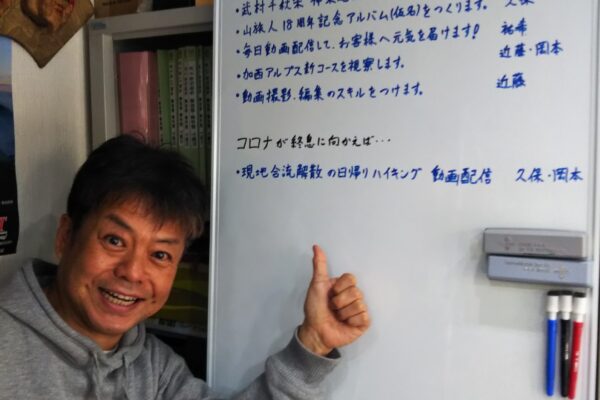 ・武村千秋
・山旅人18周年記念アルバム(仮名)をつくります。 久保
・毎日動画配信して、お客様へ元気を届けます! 祐希
近藤・岡本
・加西アルプス新コースを視察します。
・動画撮影、編集のスキルをつけます。 近藤
コロナが終息に向かえば・・・
・現地合流解散の日帰りハイキング 動画配信 久保・岡本